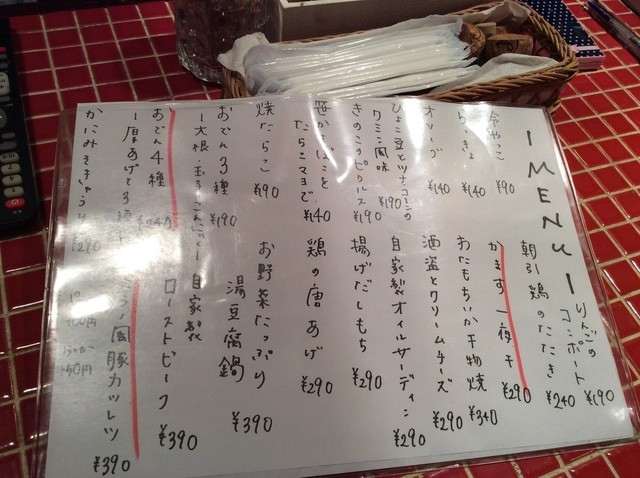 MENU
冷やっこ ¥90
らっきょ ¥140
オリーブ ¥140
ひよこ豆とツナコーンの
クミン風味 ¥190
きのこのピクルス ¥190
笹かまぼこを
たらこマヨで ¥140
焼たらこ ¥190
おでん3種 ¥190
ー大根・玉子・こんにゃくー
おでん4種 ¥240
ー厚あげと3種
かにみそきゅうり ¥290
りんごの
コンポート ¥190
朝引鶏のたたき ¥240
かます一夜干 ¥290
おたもちいか干物焼 ¥340
酒盗とクリームチーズ ¥290
自家製オイルサーディン ¥290
揚げだしもち ¥290
鶏の唐あげ ¥290
お野菜たっぷり
湯豆腐鍋 ¥390
自家製
ローストビーフ ¥390
ミラノ風豚カツレツ ¥390